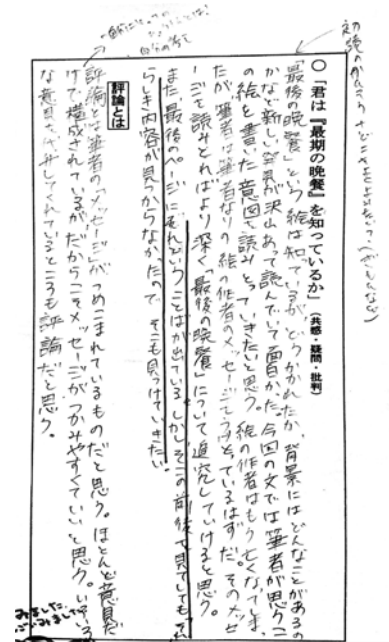 初発のかんそう
○「君は『最期の晩餐』を知っているか」（共感・疑問・批判）
「最後の晩餐」という絵は知っているが、どうかかれたか、背景にはどんなことがあるの
かなど新しい発見が沢山あって読んでいて面白かった。今回の文では筆者が思うこ
の絵を書いた意図を読みとっていきたいと思う。絵の作者はもう亡くなってしまっ
たが筆者は筆者なりの絵の作者のメッセージをうけとっているはずだ。そのメッセ
ージを読みとればより深く「最後の晩餐」について追究していけると思う。
また、最後のページにそれということばが出ている。しかしその前後を見ていてもそれ
らしき内容が見つからなかったので、そこも見つけていきたい。
評論とは
評論とは筆者の「メッセージ」がつめこまれているものだと思う。ほとんど意見だ
けで構成されているが、だからこそメッセージがつかみやすくていいと思う。いろいろ
な意見を代弁してくれているところも評論だと思う。